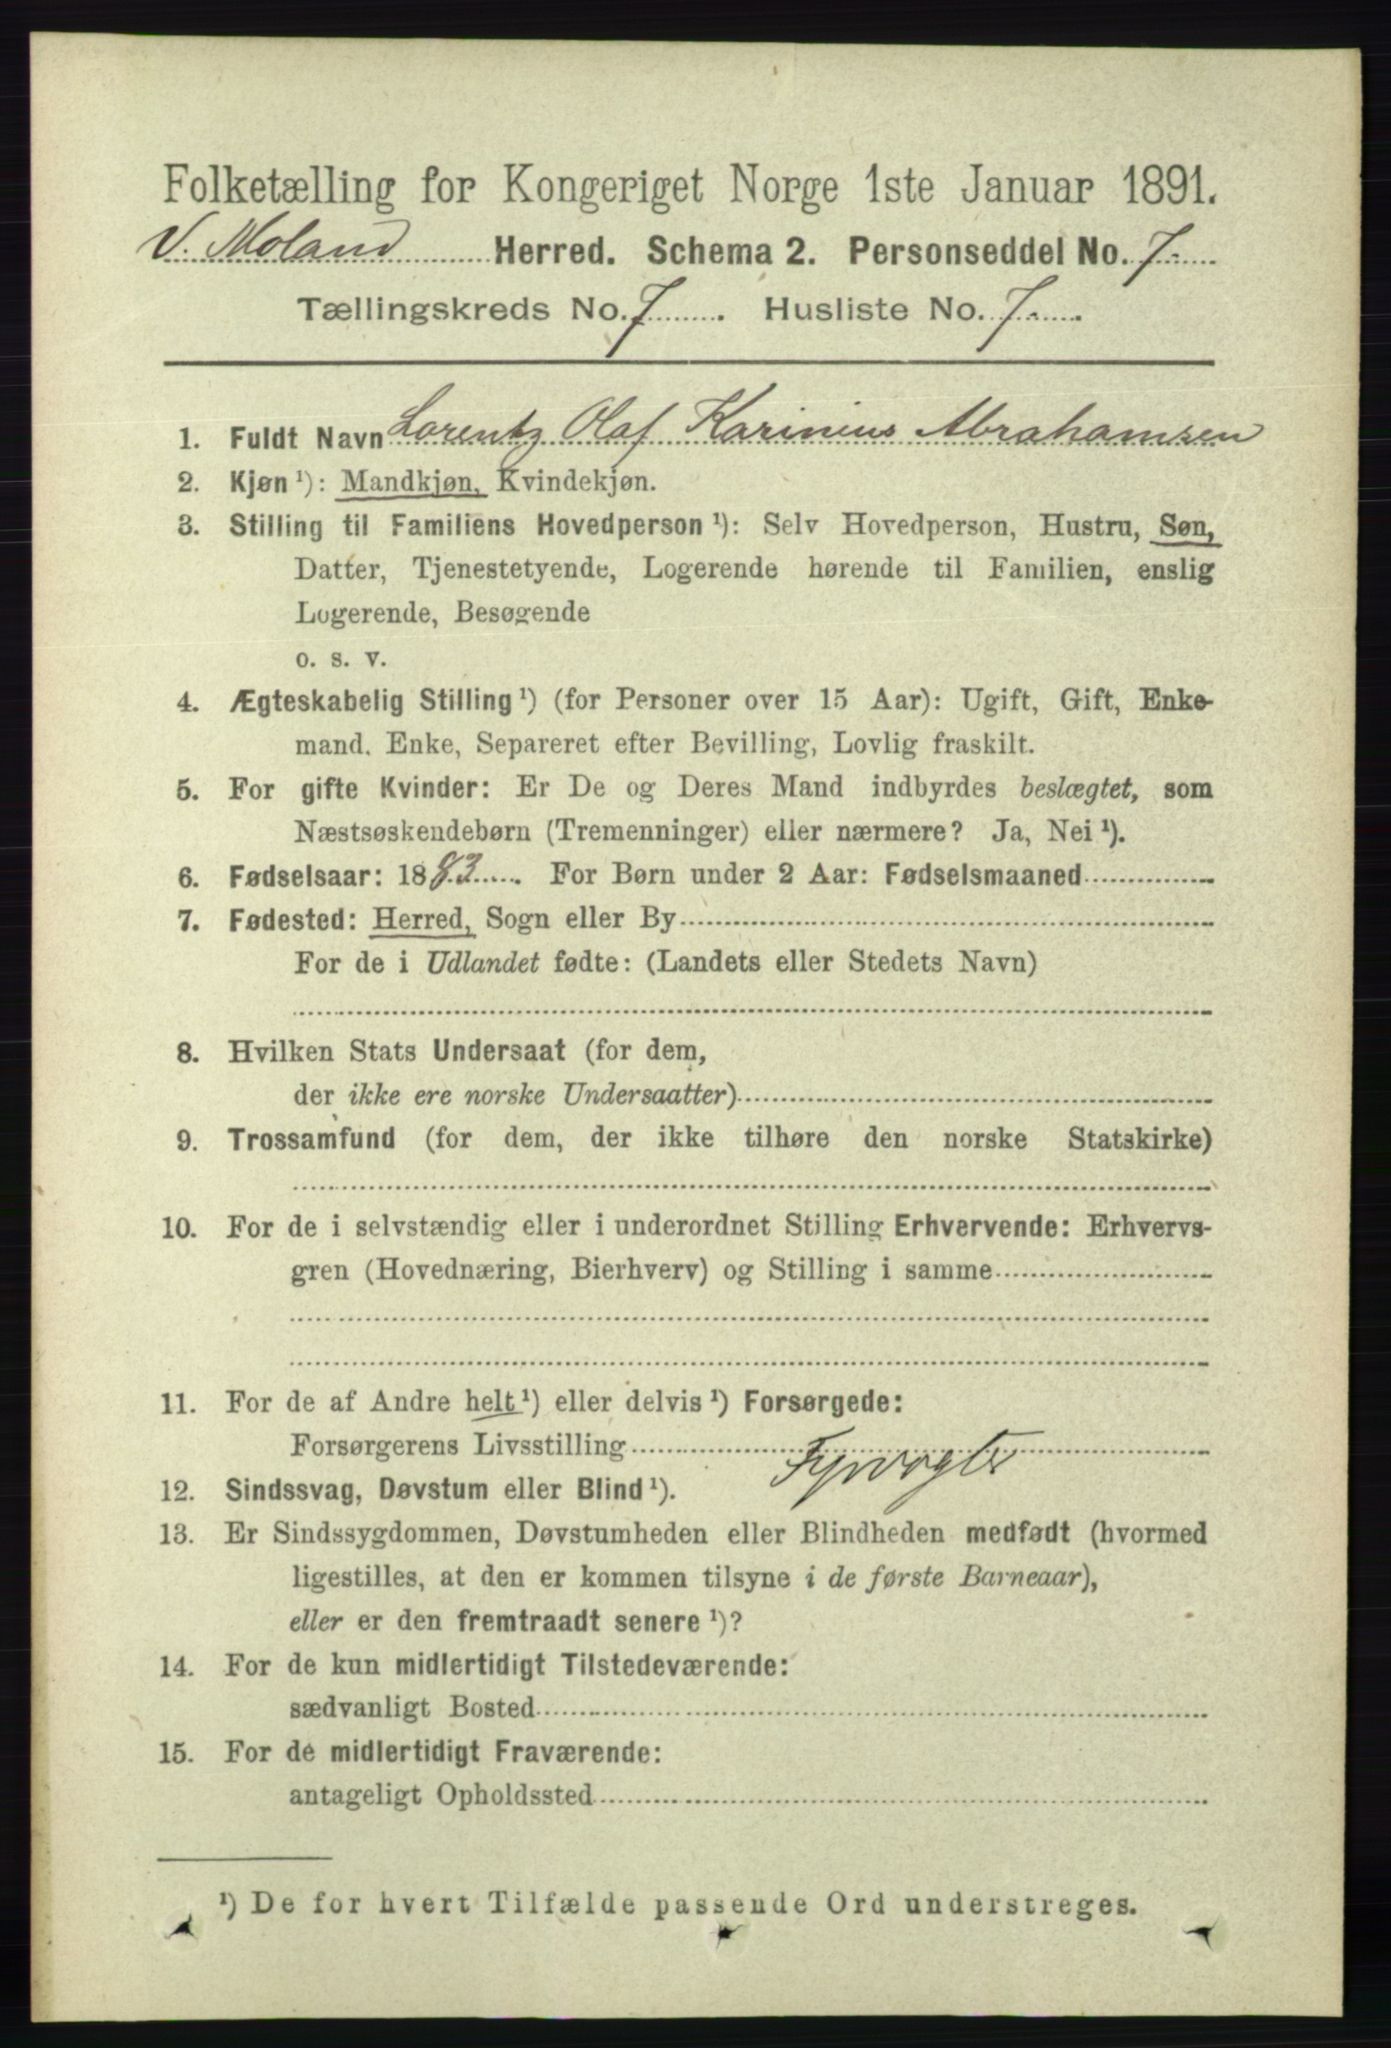 Folketælling for Kongeriget Norge 1ste Januar 1891.
V. Moland Herred. Schema 2. Personseddel No. 7
Tællingskreds No. 7. Husliste No. 7
1. Fuldt Navn Lorentz Olaf Karinius Abrahamsen
2. Kjøn¹): Mandkjøn, Kvindekjøn.
3. Stilling til Familiens Hovedperson¹): Selv Hovedperson, Hustru, Søn,
Datter, Tjenestetyende, Logerende hørende til Familien, enslig
Logerende, Besøgende
o. s. v.
4. Ægteskabelig Stilling¹) (for Personer over 15 Aar): Ugift, Gift, Enke-
mand. Enke, Separeret efter Bevilling, Lovlig fraskilt.
5. For gifte Kvinder: Er De og Deres Mand indbyrdes beslægtet, som
Næstsøskendebørn (Tremenninger) eller nærmere? Ja, Nei¹).
6. Fødselsaar: 1883. For Børn under 2 Aar: Fødselsmaaned
7. Fødested: Herred, Sogn eller By
For de i Udlandet fødte: (Landets eller Stedets Navn)
8. Hvilken Stats Undersaat (for dem,
der ikke ere norske Undersaatter)
9. Trossamfund (for dem, der ikke tilhøre den norske Statskirke)
10. For de i selvstændig eller i underordnet Stilling Erhvervende: Erhvervs-
gren (Hovednæring, Bierhverv) og Stilling i samme
11. For de af Andre helt¹) eller delvis¹) Forsørgede:
Forsørgerens Livsstilling Fyrvogter
12. Sindssvag, Døvstum eller Blind¹).
13. Er Sindssygdommen, Døvstumheden eller Blindheden medfødt (hvormed
ligestilles, at den er kommen tilsyne i de første Barneaar),
eller er den fremtraadt senere¹)?
14. For de kun midlertidigt Tilstedeværende:
sædvanligt Bosted
15. For de midlertidigt Fraværende:
antageligt Opholdssted
¹) De for hvert Tilfælde passende Ord understreges.